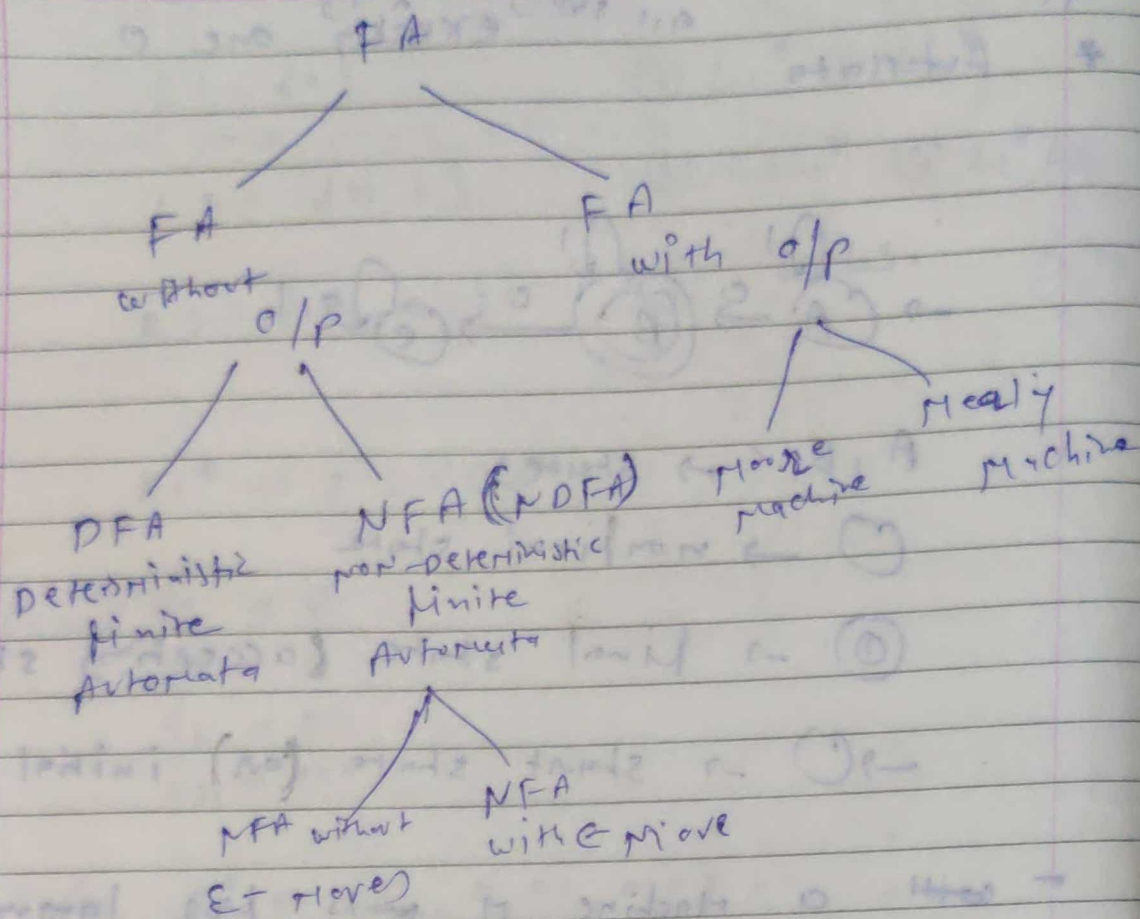 FA
FA
without
o/p
FA
with o/p
DFA
Deterministic
finite
Automata
NFA (NDFA)
Non-Deterministic
finite
Automata
Moore
Machine
Mealy
Machine
NFA without
ε- Moves
NFA
with ε Move